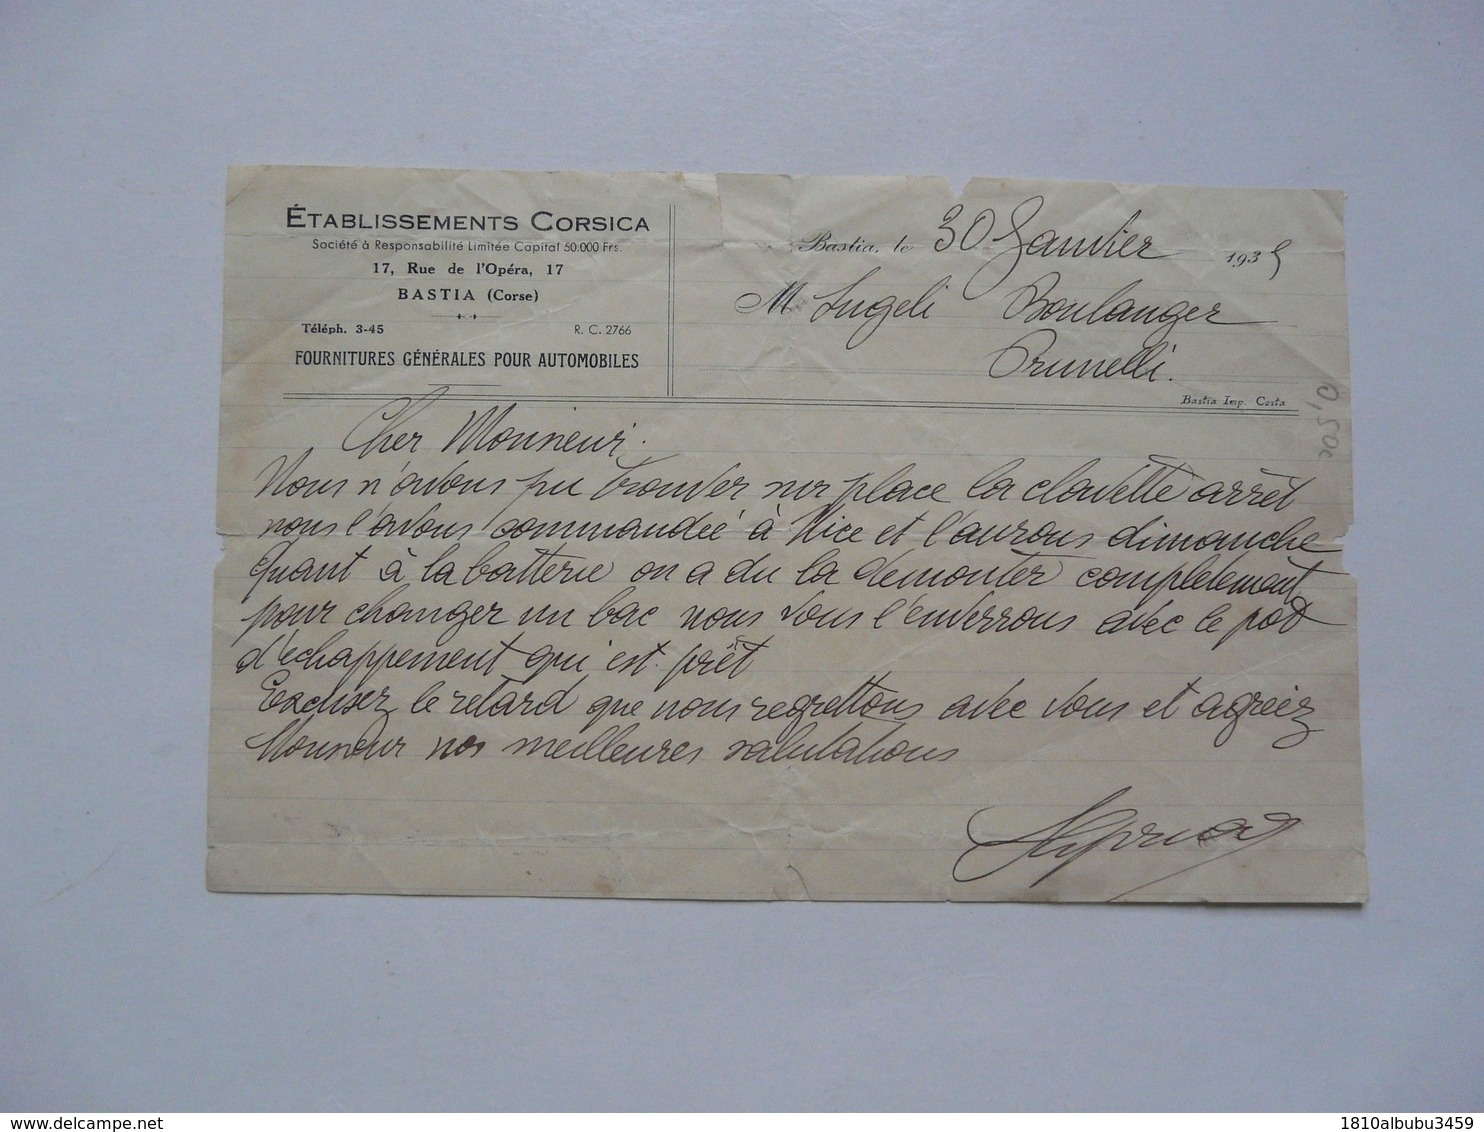 ÉTABLISSEMENTS CORSICA
Société à Responsabilité Limitée Capital 50.000 Frs.
17, Rue de l'Opéra, 17
BASTIA (Corse)
Téléph. 3-45 R. C. 2766
FOURNITURES GÉNÉRALES POUR AUTOMOBILES
Bastia, le 30 Janvier 1935
M Angeli Boulanger
Prunelli.
Bastia Imp. Costa
0,50c
Cher Monsieur.
Nous n'avons pu trouver sur place la clavette arrêt
nous l'avons commandée à Nice et l'aurons dimanche
Quant à la batterie on a du la démonter complètement
pour changer un bac nous vous l'enverrons avec le pot
d'échappement qui est prêt
Excusez le retard que nous regrettons avec vous et agréez
Monsieur nos meilleures salutations
1810albubu3459